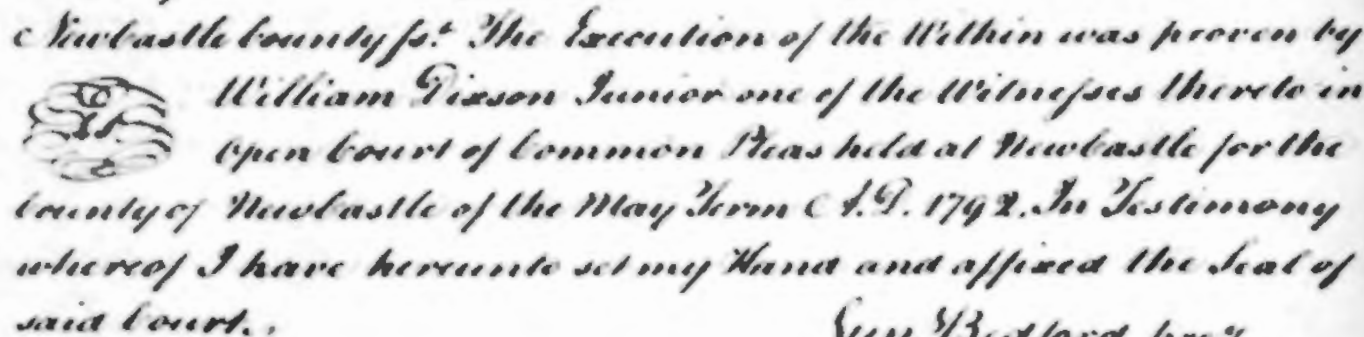 NewCastle County ss.t The Execution of the Within was proven by
William Dixson Junior one of the Witnesses thereto in
Open Court of Common Pleas held at NewCastle for the
County of NewCastle of the May Term A.D. 1792. In Testimony
whereof I have hereunto set my Hand and affixed the Seal of
said Court.
Gun. Bedford Pro.y